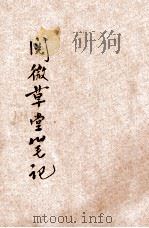 研狗
閱微草堂笔记
www.mtoou.info